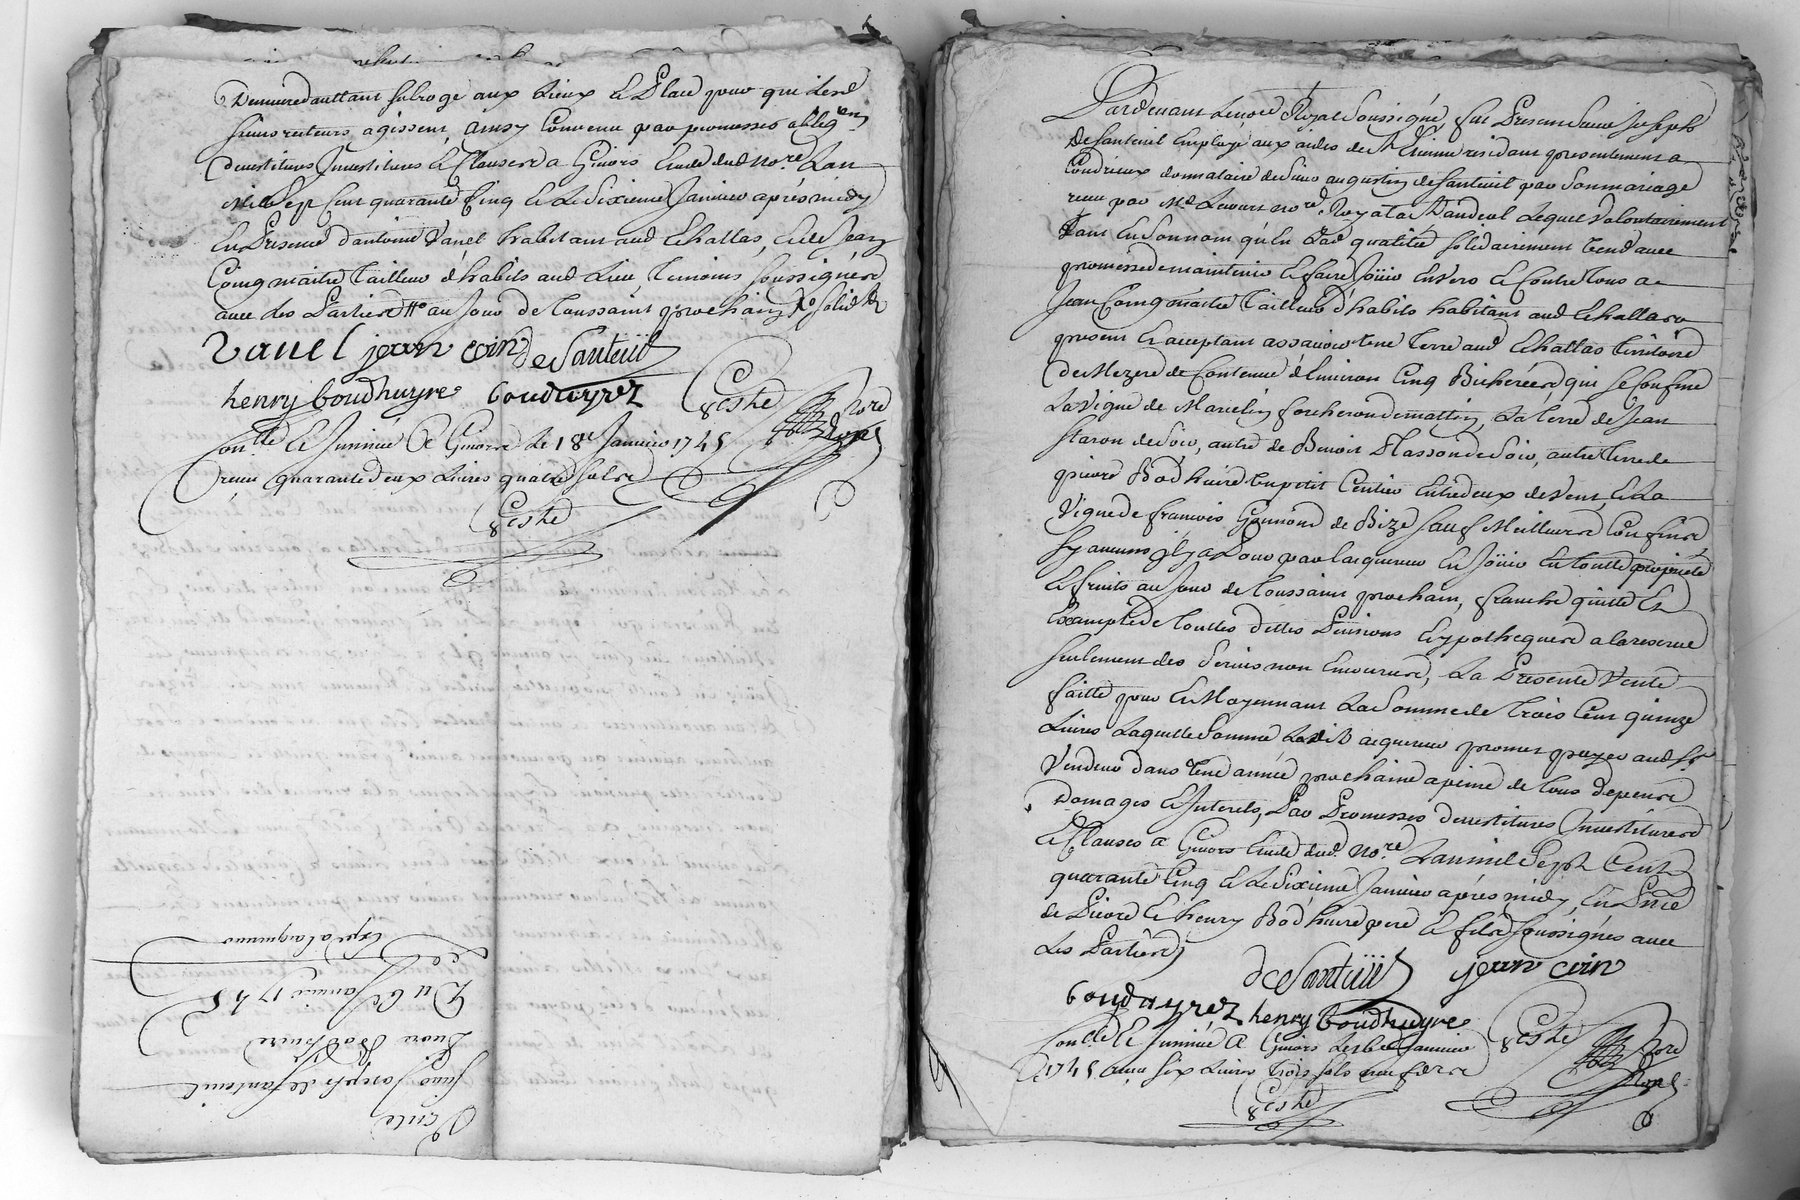 Demeure d'auttant subrogé aux Lieux Et Place pour que
agissent, ainsy Convenu par promesses oblig.ons
Devestitures Investitures Et Clauses a Givors Etude dud. No.re L'an
Mille Sept Cent quarante Cinq Et Le Sixieme Janvier après midy
En Presence d'antoine Vanel habitant aud. Echallas, Et de Jean
Coing maitre Tailleur d'habits aud. Lieu, Temoins soussignés
avec des Parties au Jour de Toussaint prochain
Vanel jean coin deSanteüil
henry boudhuyre bouduyrez Teste Nore Royal
Con.lle Et Insinué A Givors Le 18e Janvier 1745
receu quarante deux Livres quatre sols
Teste
Vente
Sieur Joseph de Santeuil
a
Pierre Bodhuire
Du 6e Janvier 1745
Expé a l'acquereur
Pardevant Le no.re Royal Soussigné, fut Present Sieur Joseph
De Santeuil Employé aux aides de St Etienne residant presentement a
Condrieux donnataire de Sieur augustin de Santeuil par Son mariage
receu par Me no.re Royal a Lequel Volontairement
Tant En Son nom qu'En Lad. qualitée solidairement Vend avec
promesse de maintenir Et faire Joüir Envers Et Contre tous a
Jean Coing maitre Tailleur d'habits habitant aud. Echallas
present Et acceptant assavoir Une Terre aud. Echallas Territoire
De Mezere de Contenue d'Environ Cinq Bicherées qui Se Confine
La Vigne de Marcelin de matin, La Terre de Jean
de Soir, autre de Benoit de Soir, autre Terre de
pierre Bodhuire Un petit Sentier Entredeux de Vent, Et La
Vigne de francois de Bize Sauf Meilleurs Confins
Sy aucuns il y a Pour par Lacquereur En Joüir En toutte propriété
Et fruits au Jour de Toussaint prochain, franche quitte Et
Exempte de Touttes dettes Pensions Et ypotheques a la reserve
seulement des Servis non Encourus, La Presente Vente
faitte pour Et Moyennant La Somme de Trois Cent quinze
Livres Laquelle Somme Ledit acquereur promet payer aud. Sr
Vendeur dans Une année prochaine a peine de tous depens
Domages Et Interets, Par Promesses Devestitures Investitures
Et Clauses a Givors Etude dud. No.re L'an mille Sept Cent
quarante Cinq Et Le Sixieme Janvier après midy, En Pnce
de Pierre Et henry Bodhuire pere Et fils soussignés avec
Les Parties
deSanteüil jean coin
bouduyrez henry boudhuyre
Con.lle Et Insinué A Givors Le 18e Janvier Teste Nore
1745 receu six Livres trois sols neuf d.rs Royal
Teste